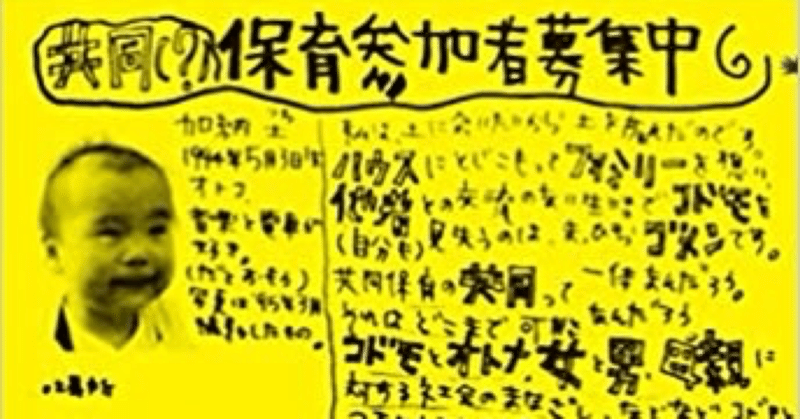 共同(?)保育参加者募集中
加納 土
1994年5月3日生
オトコ
音楽と電車が
すきだ。
(だと おもう)
写真は'95年3月
撮影したもの。
私は、土に会いたいから 土を産んだのです。
ハウスにとじこもってファミリーを想い、
他者との交流のない生活でコドモを
(自分も)見失うのは、まっぴらゴメンです。
共同保育の共同って 一体なんだろう。
それはどこまで可能なんだろう
コドモとオトナ、女と男、母親に
対する社会のまなざし、などなど